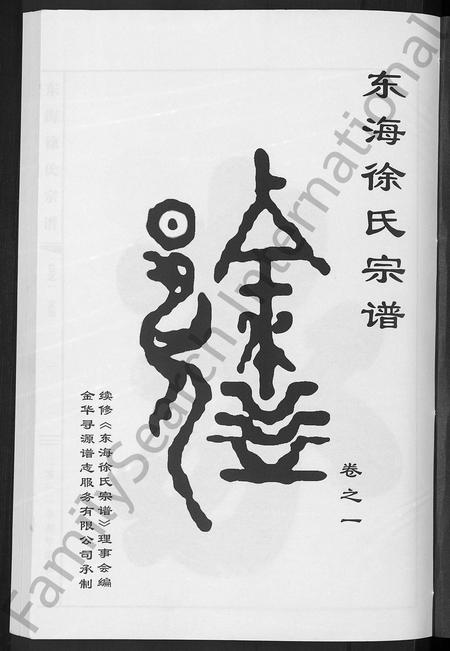 东海徐氏宗谱
卷之一
续修《东海徐氏宗谱》理事会编
金华寻源谱志服务有限公司承制
FamilySearch International